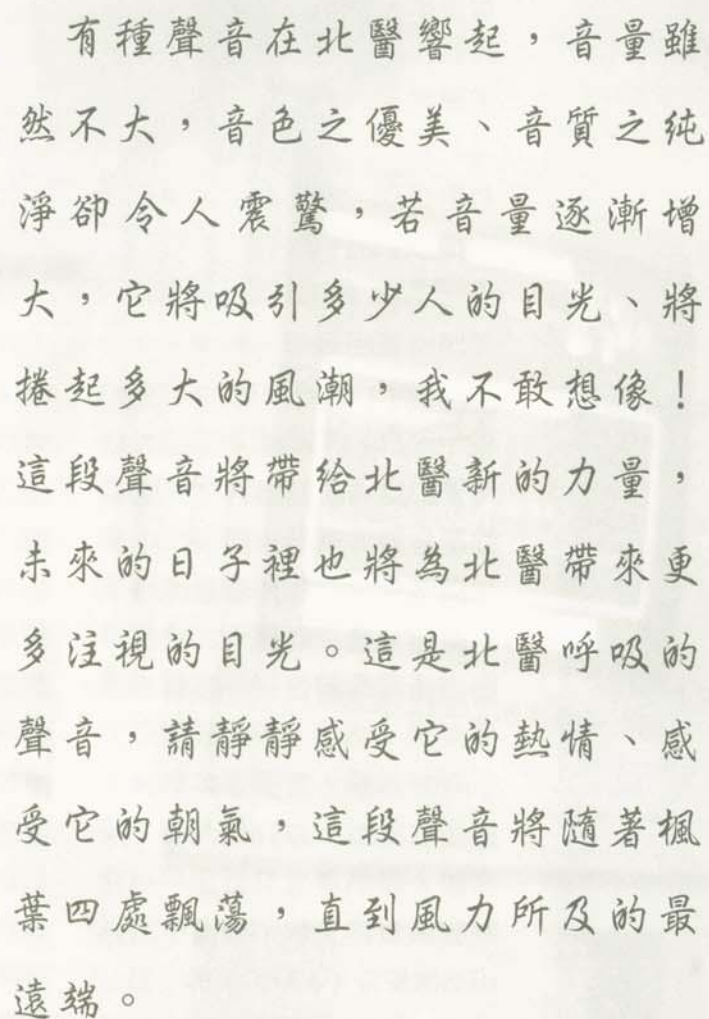 有種聲音在北醫響起，音量雖
然不大，音色之優美、音質之純
淨卻令人震驚，若音量逐漸增
大，它將吸引多少人的目光、將
捲起多大的風潮，我不敢想像！
這段聲音將帶給北醫新的力量，
未來的日子裡也將為北醫帶來更
多注視的目光。這是北醫呼吸的
聲音，請靜靜感受它的熱情、感
受它的朝氣，這段聲音將隨著楓
葉四處飄蕩，直到風力所及的最
遠端。